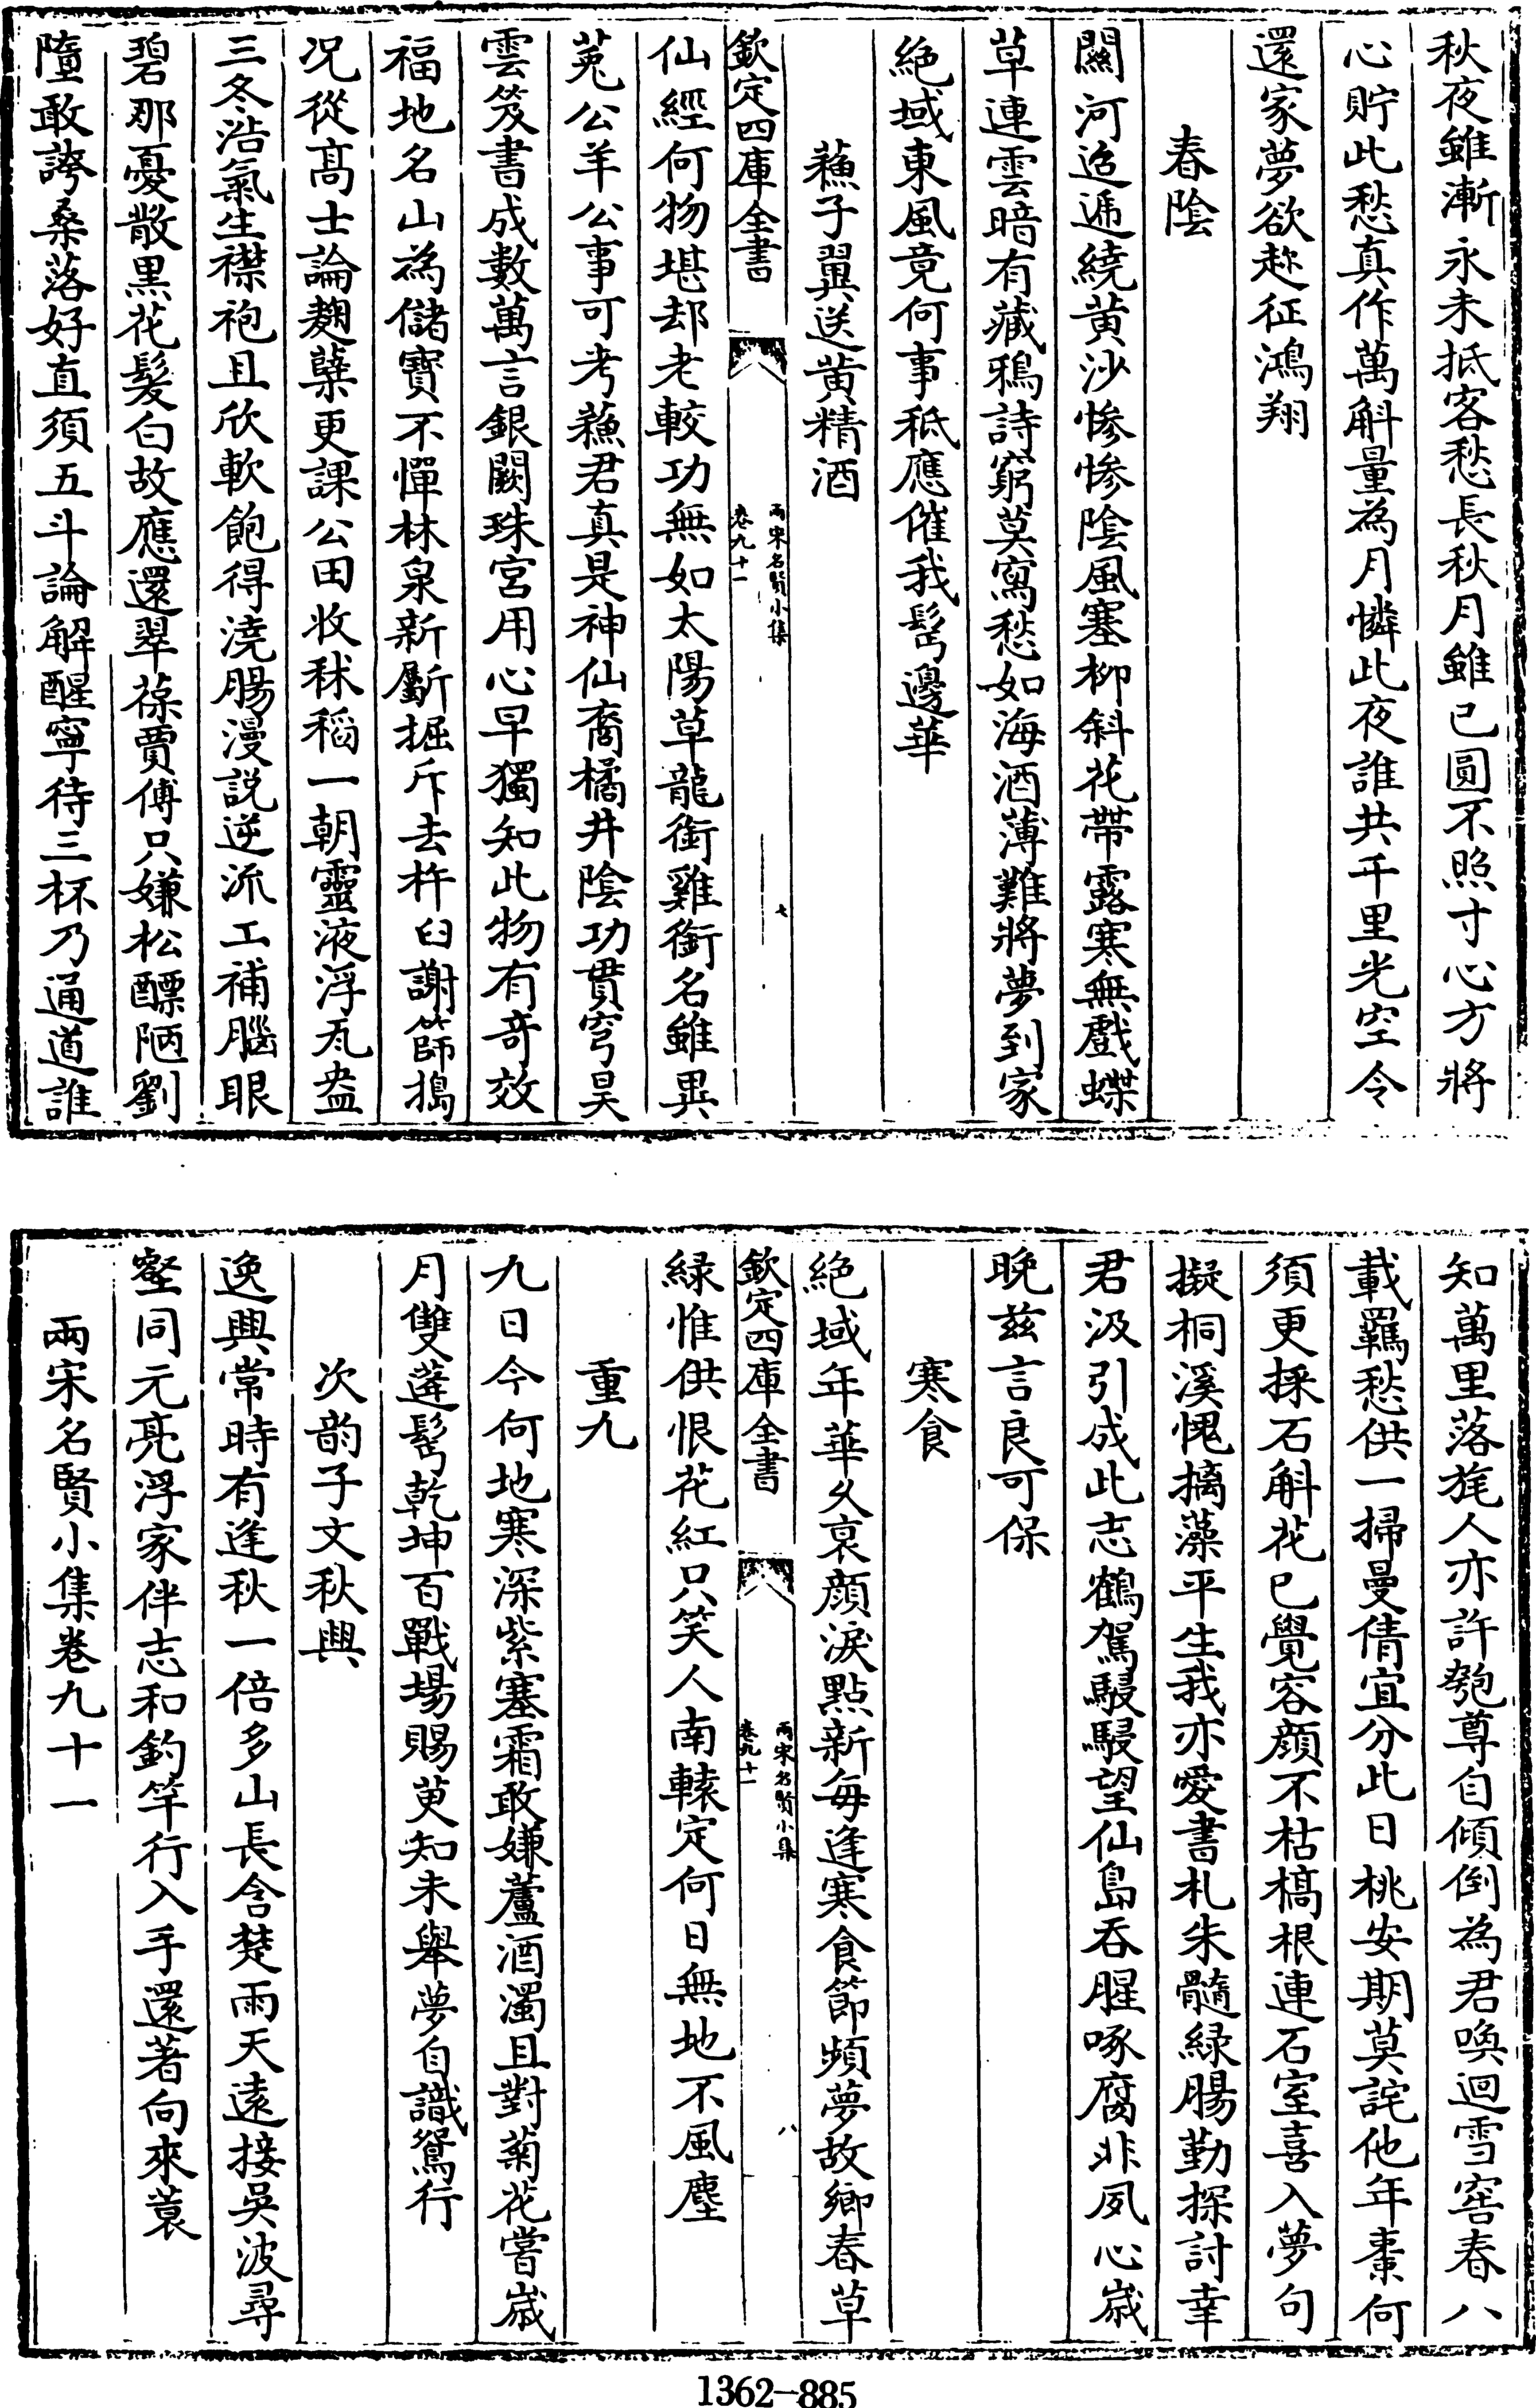 秋夜雖漸永未抵客愁長秋月雖已圓不照寸心方將
心貯此愁真作萬斛量為月憐此夜誰共千里光空令
還家夢欲趂征鴻翔
春陰
關河迢遞繞黄沙慘慘陰風塞柳斜花帶露寒無戲蝶
草連雲暗有藏鴉詩窮莫寫愁如海酒薄難將夢到家
絶域東風竟何事秪應催我髩邊華
蘓子翼送黄精酒
欽定四庫全書
兩宋名賢小集
卷九十一
七
仙經何物堪却老較功無如太陽草龍銜雞銜名雖異
菟公羊公事可考蘓君真是神仙裔橘井陰功貫穹昊
雲笈書成數萬言銀闕珠宮用心早獨知此物有竒效
福地名山為儲寳不憚林泉新斸掘斥去杵臼謝篩搗
况從髙士論麴櫱更課公田收秫稻一朝靈液浮瓦盎
三冬沴氣生襟袍且欣軟飽得澆腸漫説逆流工補腦眼
碧那憂散黒花髪白故應還翠葆賈傅只嫌松醥陋劉
墮敢誇桑落好直須五斗論解酲寧待三杯乃通道誰
知萬里落旄人亦許匏尊自傾倒為君喚迴雪窖春八
載羈愁供一掃曼倩宜分此日桃安期莫詫他年棗何
須更採石斛花已覺容顔不枯槁根連石室喜入夢句
擬桐溪愧摛藻平生我亦愛書札朱髓緑腸勤探討幸
君汲引成此志鶴駕駸駸望仙島吞腥啄腐非夙心嵗
晚兹言良可保
寒食
絶域年華乆哀顔淚點新每逢寒食節頻夢故鄉春草
欽定四庫全書
兩宋名賢小集
卷九十一
八
緑惟供恨花紅只笑人南轅定何日無地不風塵
重九
九日今何地寒深紫塞霜敢嫌蘆酒濁且對菊花嘗嵗
月雙蓬髩乾坤百戰場賜萸知未舉夢自識鴛行
次韵子文秋興
逸興常時有逢秋一倍多山長含楚雨天逺接吳波尋
壑同元亮浮家伴志和釣竿行入手還著向來蓑
兩宋名賢小集卷九十一
1362—885